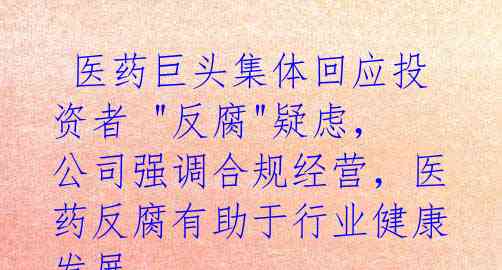 医药巨头集体回应投
资者 "反腐"疑虑，
公司强调合规经营，医
药反腐有助于行业健康
发展